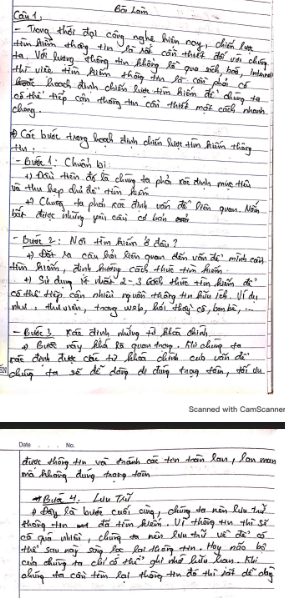 Bài Làm
Câu 1.
- Trong thời đại công nghệ hiện nay, chiến lược
tìm kiếm thông tin là rất cần thiết đối với chúng
ta. Với lượng thông tin khổng lồ qua sách, báo, internet
thư viện, tìm kiếm thông tin là cần phải có
hoạch định chiến lược tìm kiếm để chúng ta
có thể tiếp cận thông tin cần thiết một cách nhanh
chóng.
Các bước trong hoạch định chiến lược tìm kiếm thông
tin:
- Bước 1: Chuẩn bị
Đầu tiên đó là chúng ta phải xác định mục tiêu
và thu hẹp chủ đề tìm kiếm
Chúng ta phải xác định vấn đề liên quan. Nắm
bắt được những yêu cầu cơ bản
- Bước 2: Nơi tìm kiếm ở đâu?
Đặt ra câu hỏi liên quan đến vấn đề mình cần
tìm kiếm, định hướng cách thức tìm kiếm.
Sử dụng ít nhất 2-3 cách thức tìm kiếm để
có thể tiếp cận nhiều nguồn thông tin hữu ích. Ví dụ
như: thư viện, trang web, hỏi thầy cô, bạn bè, ...
- Bước 3. Xác định những từ khóa chính
Bước này khá là quan trọng. Khi chúng ta
xác định được các từ khóa chính của vấn đề
chúng ta sẽ dễ dàng đi đúng trọng tâm, tối ưu
Scanned with CamScanner
Date No.
được thông tin và tránh các tin tràn lan, lan man
mà không đúng trọng tâm
Bước 4. Lưu Trữ
Đây là bước cuối cùng, chúng ta nên lưu trữ
thông tin đã tìm kiếm. Vì thông tin thì sẽ
có quá nhiều, chúng ta nên lưu trữ về để có
thể sau này sàng lọc lại thông tin. Hay não bộ
của chúng ta chỉ có thể ghi nhớ hữu hạn. Khi
chúng ta cần tìm lại thông tin đó thì rất dễ dàng